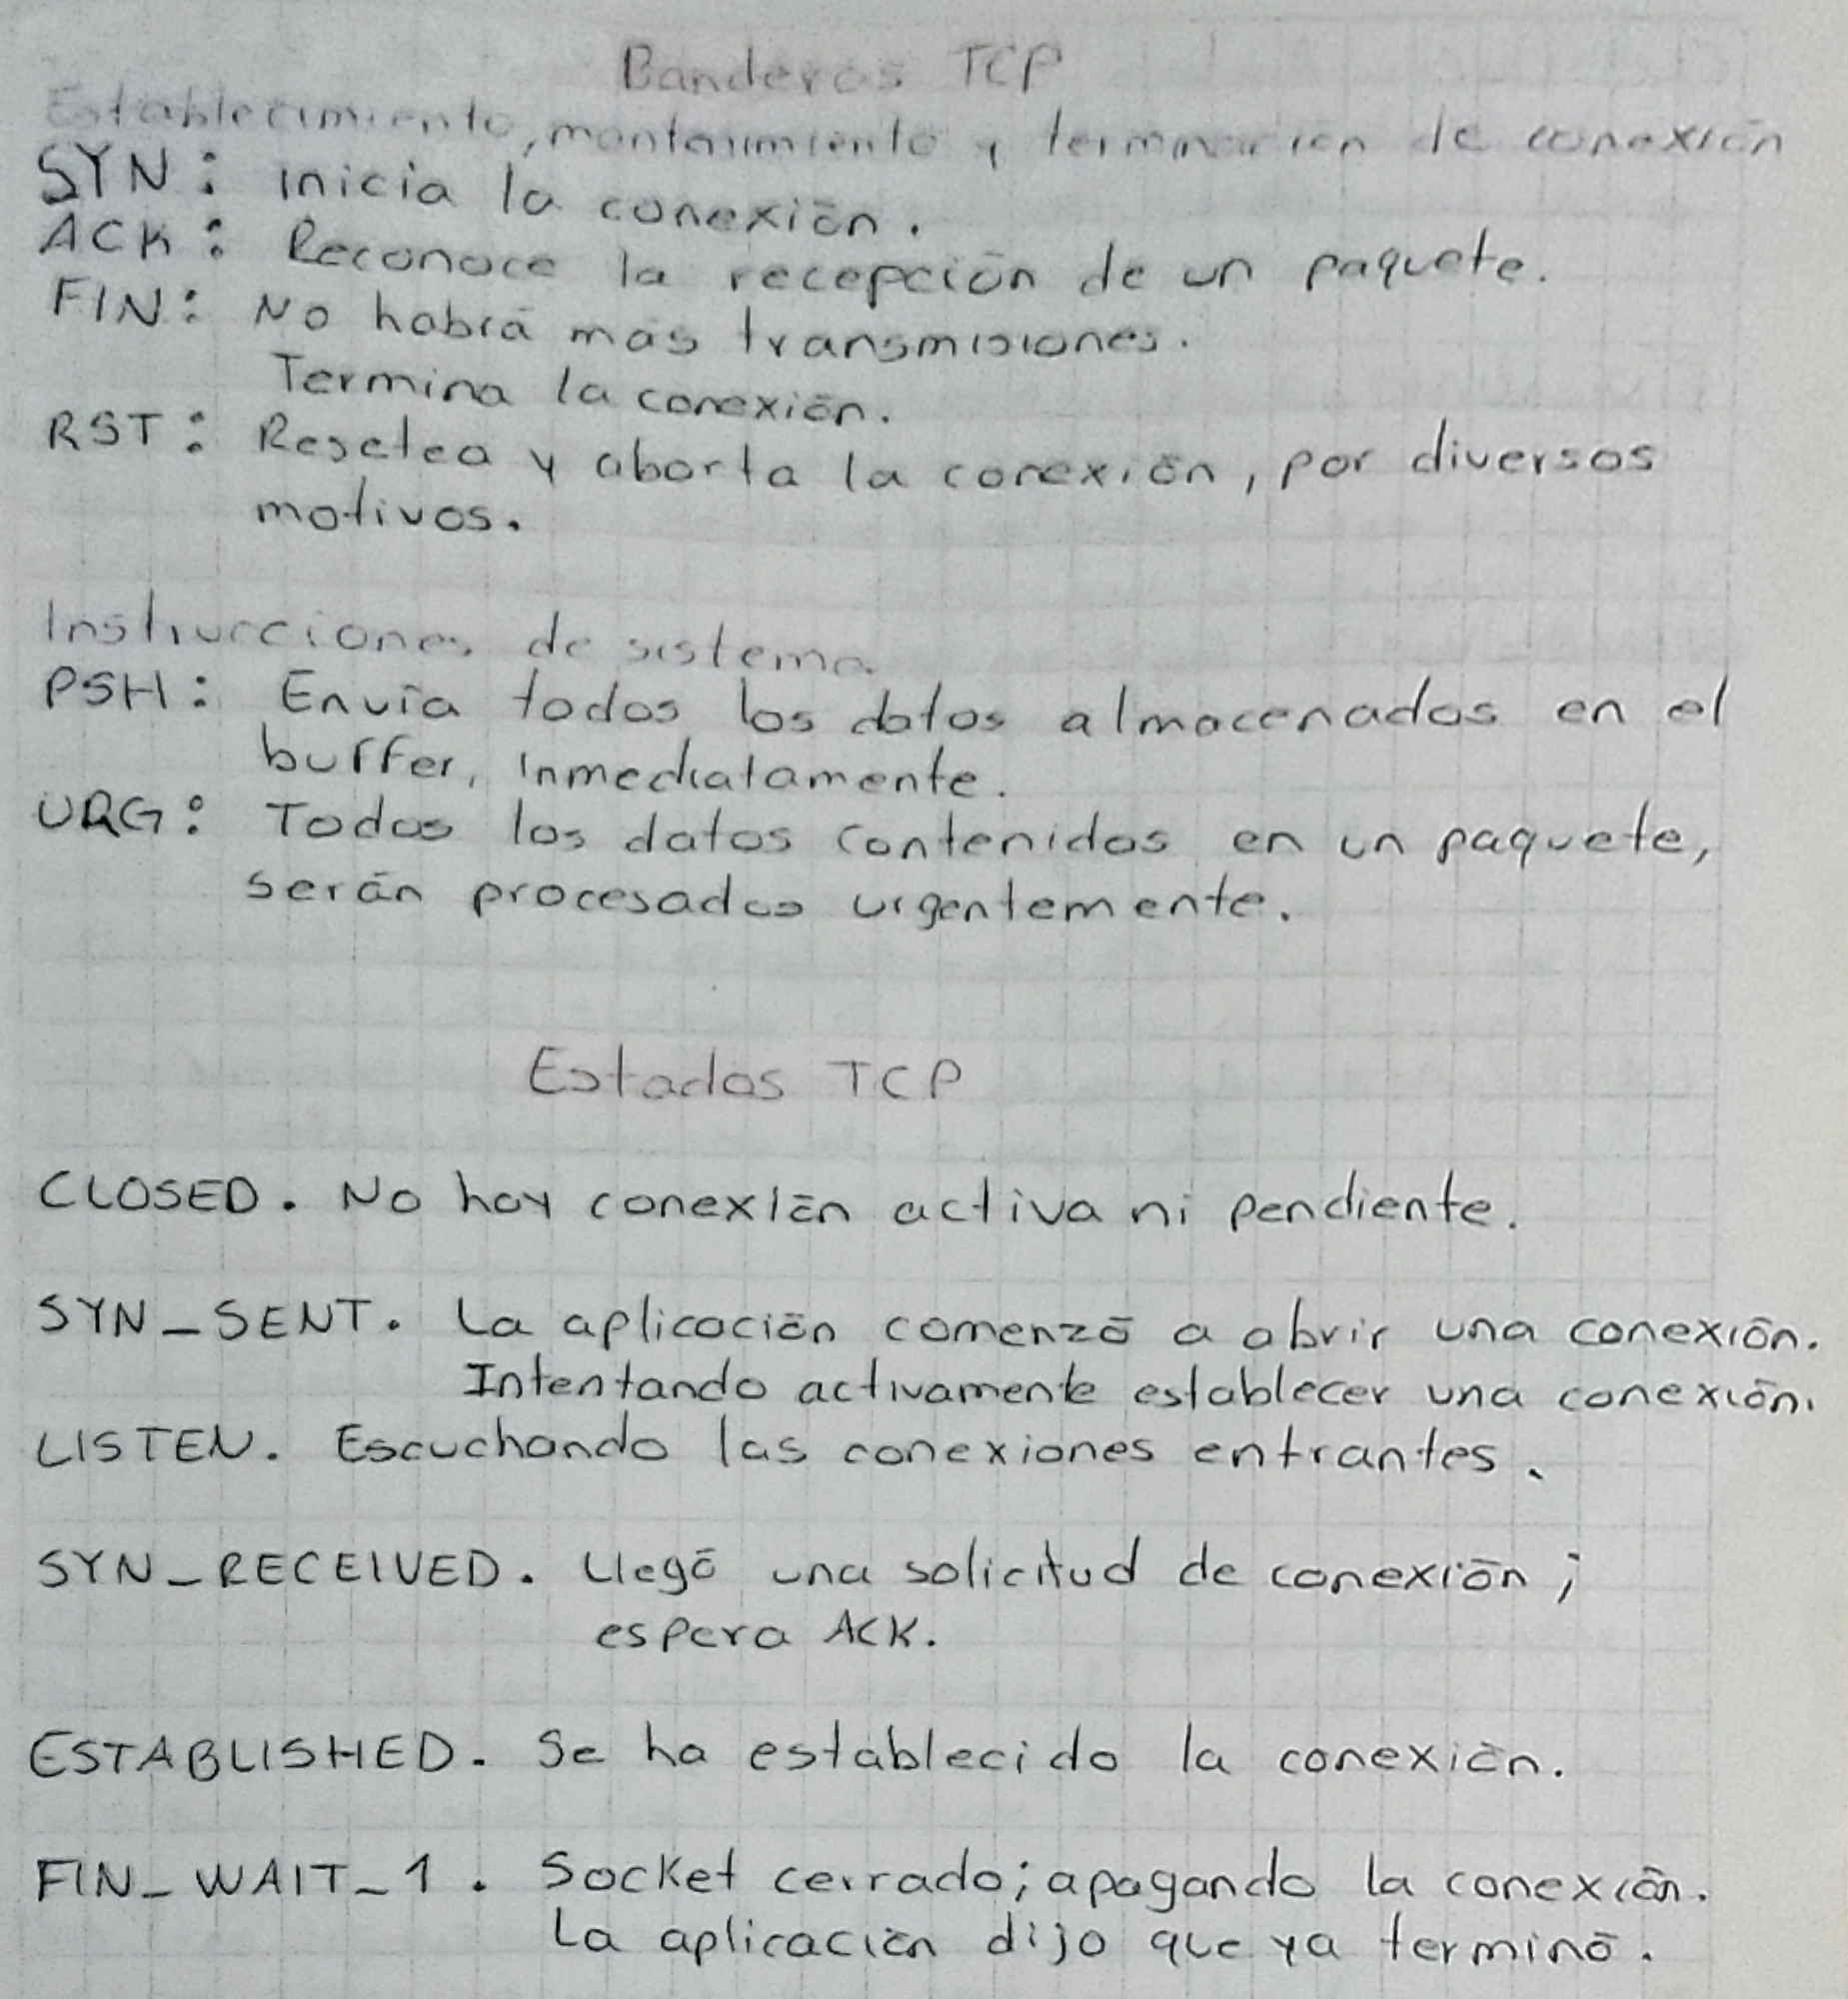 Banderas TCP
Establecimiento, mantenimiento y terminación de conexión
SYN: inicia la conexión.
ACK: Reconoce la recepción de un paquete.
FIN: No habrá más transmisiones.
Termina la conexión.
RST: Resetea y aborta la conexión, por diversos
motivos.
Instrucciones de sistema
PSH: Envía todos los datos almacenados en el
buffer, inmediatamente.
URG: Todos los datos contenidos en un paquete,
serán procesados urgentemente.
Estados TCP
CLOSED. No hay conexión activa ni pendiente.
SYN_SENT. La aplicación comenzó a abrir una conexión.
Intentando activamente establecer una conexión.
LISTEN. Escuchando las conexiones entrantes.
SYN_RECEIVED. Llegó una solicitud de conexión;
espera ACK.
ESTABLISHED. Se ha establecido la conexión.
FIN_WAIT_1. Socket cerrado; apagando la conexión.
La aplicación dijo que ya terminó.